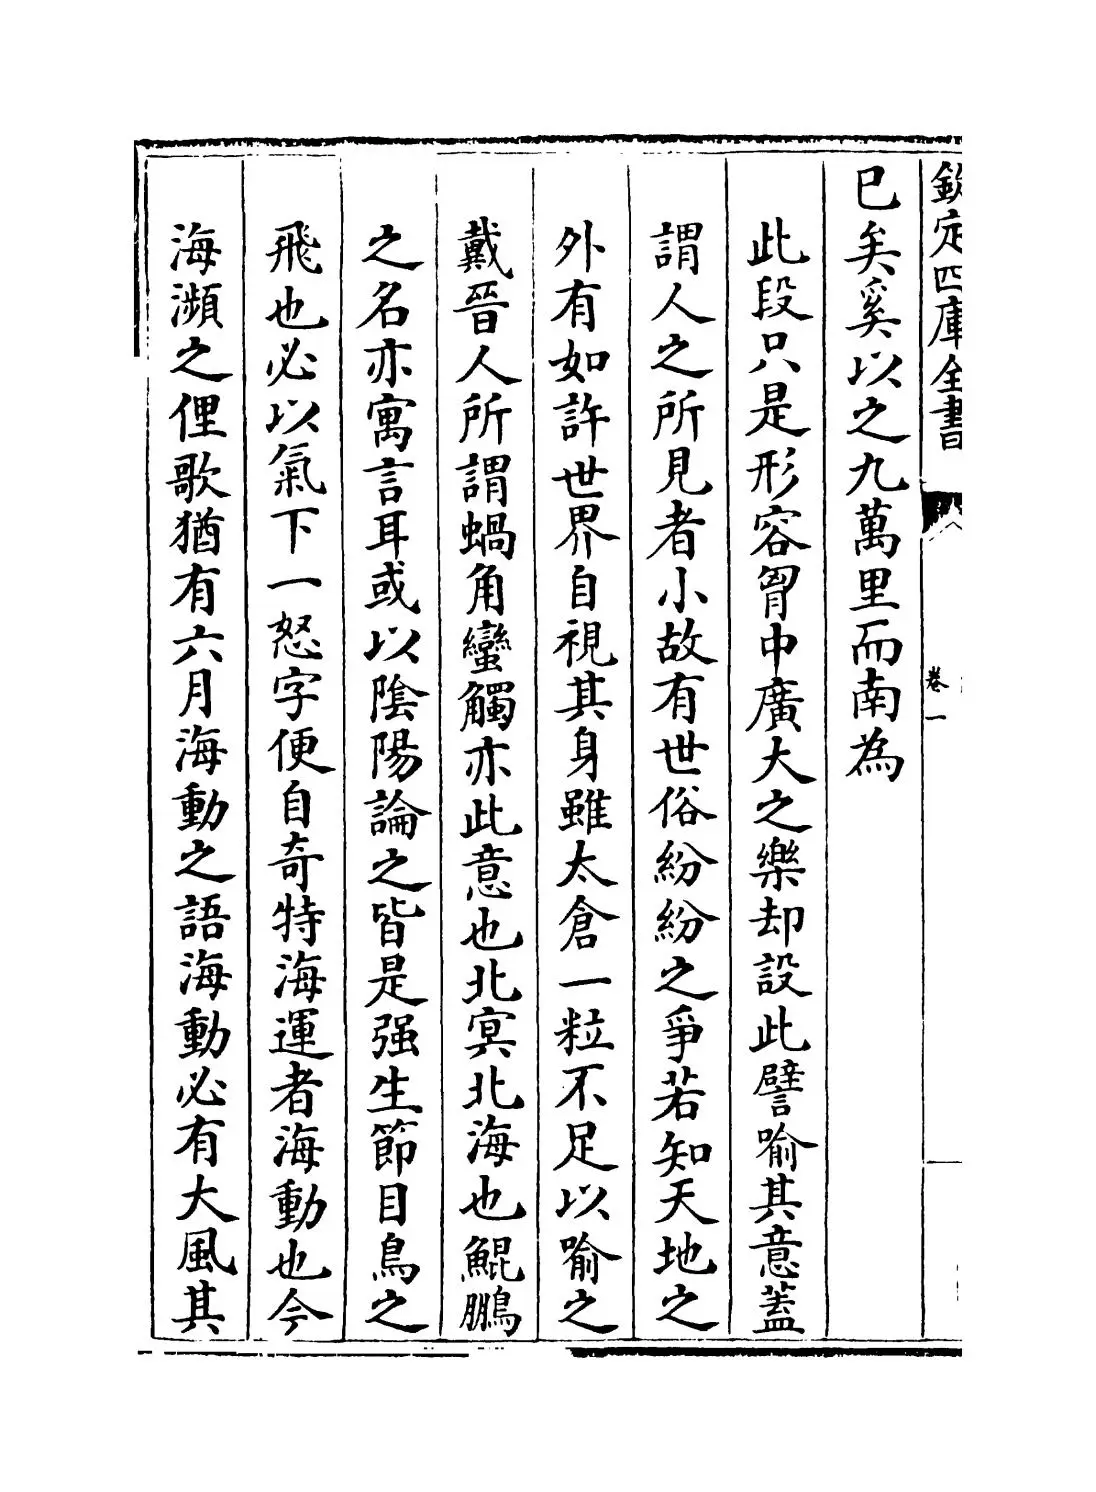 欽定四庫全書
卷一
已矣奚以之九萬里而南為
此段只是形容胷中廣大之樂却設此譬喻其意蓋
謂人之所見者小故有世俗紛紛之爭若知天地之
外有如許世界自視其身雖太倉一粒不足以喻之
戴晉人所謂蝸角蠻觸亦此意也北冥北海也鯤鵬
之名亦寓言耳或以隂陽論之皆是强生節目鳥之
飛也必以氣下一怒字便自奇特海運者海動也今
海瀕之俚歌猶有六月海動之語海動必有大風其